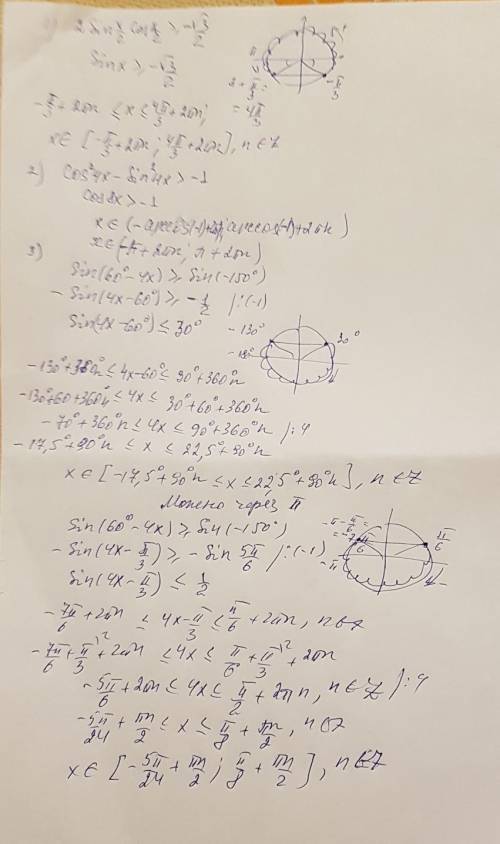 2 sin x/2 cos x/2 ≥ -√3/2
sin x ≥ -√3/2
-π/3 + 2πn ≤ x ≤ 4π/3 + 2πn;
x ∈ [-π/3 + 2πn; 4π/3 + 2πn], n ∈ Z
π
-π/3
= 4π/3
2) cos²4x - sin²4x > -1
cos8x > -1
x ∈ (-arccos(-1)+2πn; arccos(-1)+2πn)
x ∈ (-π + 2πn; π + 2πn)
3)
sin(60° - 4x) ≥ sin(-150°)
- sin(4x - 60°) ≥ -1/2 /:(-1)
sin(4x - 60°) ≤ 30°
-130°
-180°
30°
-130° + 360°n ≤ 4x - 60° ≤ 30° + 360°n
-130° + 60 + 360°n ≤ 4x ≤ 30° + 60° + 360°n
-70° + 360°n ≤ 4x ≤ 90° + 360°n /:4
-17,5° + 90°n ≤ x ≤ 22,5° + 90°n
x ∈ [-17,5° + 90°n ≤ x ≤ 22,5° + 90°n], n ∈ Z
Можно через π
sin(60° - 4x) ≥ sin(-150°)
- sin(4x - π/3) ≥ - sin 5π/6 /:(-1)
sin(4x - π/3) ≤ 1/2
-π - π/6 =
= -7π/6
-π
π/6
-7π/6 + 2πn ≤ 4x - π/3 ≤ π/6 + 2πn, n ∈ Z
-7π/6 + π/3 \2 + 2πn ≤ 4x ≤ π/6 + π/3 \2 + 2πn
-5π/6 + 2πn ≤ 4x ≤ π/2 + 2πn, n ∈ Z /:4
-5π/24 + πn/2 ≤ x ≤ π/8 + πn/2, n ∈ Z
x ∈ [-5π/24 + πn/2; π/8 + πn/2], n ∈ Z